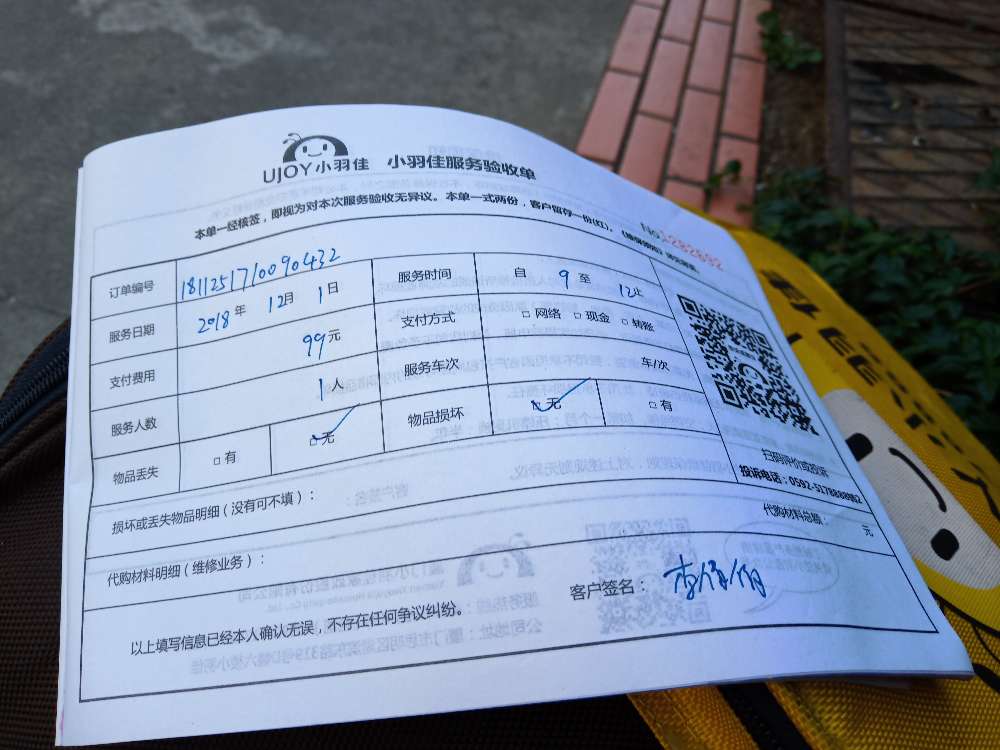 UJOY小羽佳 小羽佳服务验收单
本单一经核签，即视为对本次服务验收无异议。本单一式两份，客户留存一份(红)。
No.1282692
订单编号 181125171009 0432
服务时间 自 9 至 12止
服务日期 2018年 12月 1日
支付方式 □网络 □现金 □转账
支付费用 99元
服务车次 车/次
服务人数 1人
物品丢失 □有 □无
物品损坏 □无 □有
扫码评价或投诉
投诉电话：0592-5178888
损坏或丢失物品明细（没有可不填）：
代购材料明细（维修业务）：
代购材料总额： 元
以上填写信息已经本人确认无误，不存在任何争议纠纷。
客户签名：